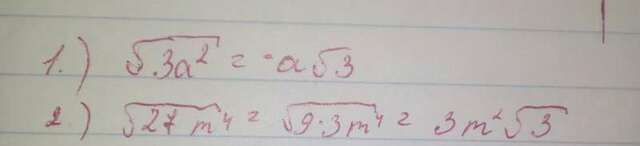 1.) √3a² = -a√3
2.) √27m⁴ = √9·3m⁴ = 3m²√3